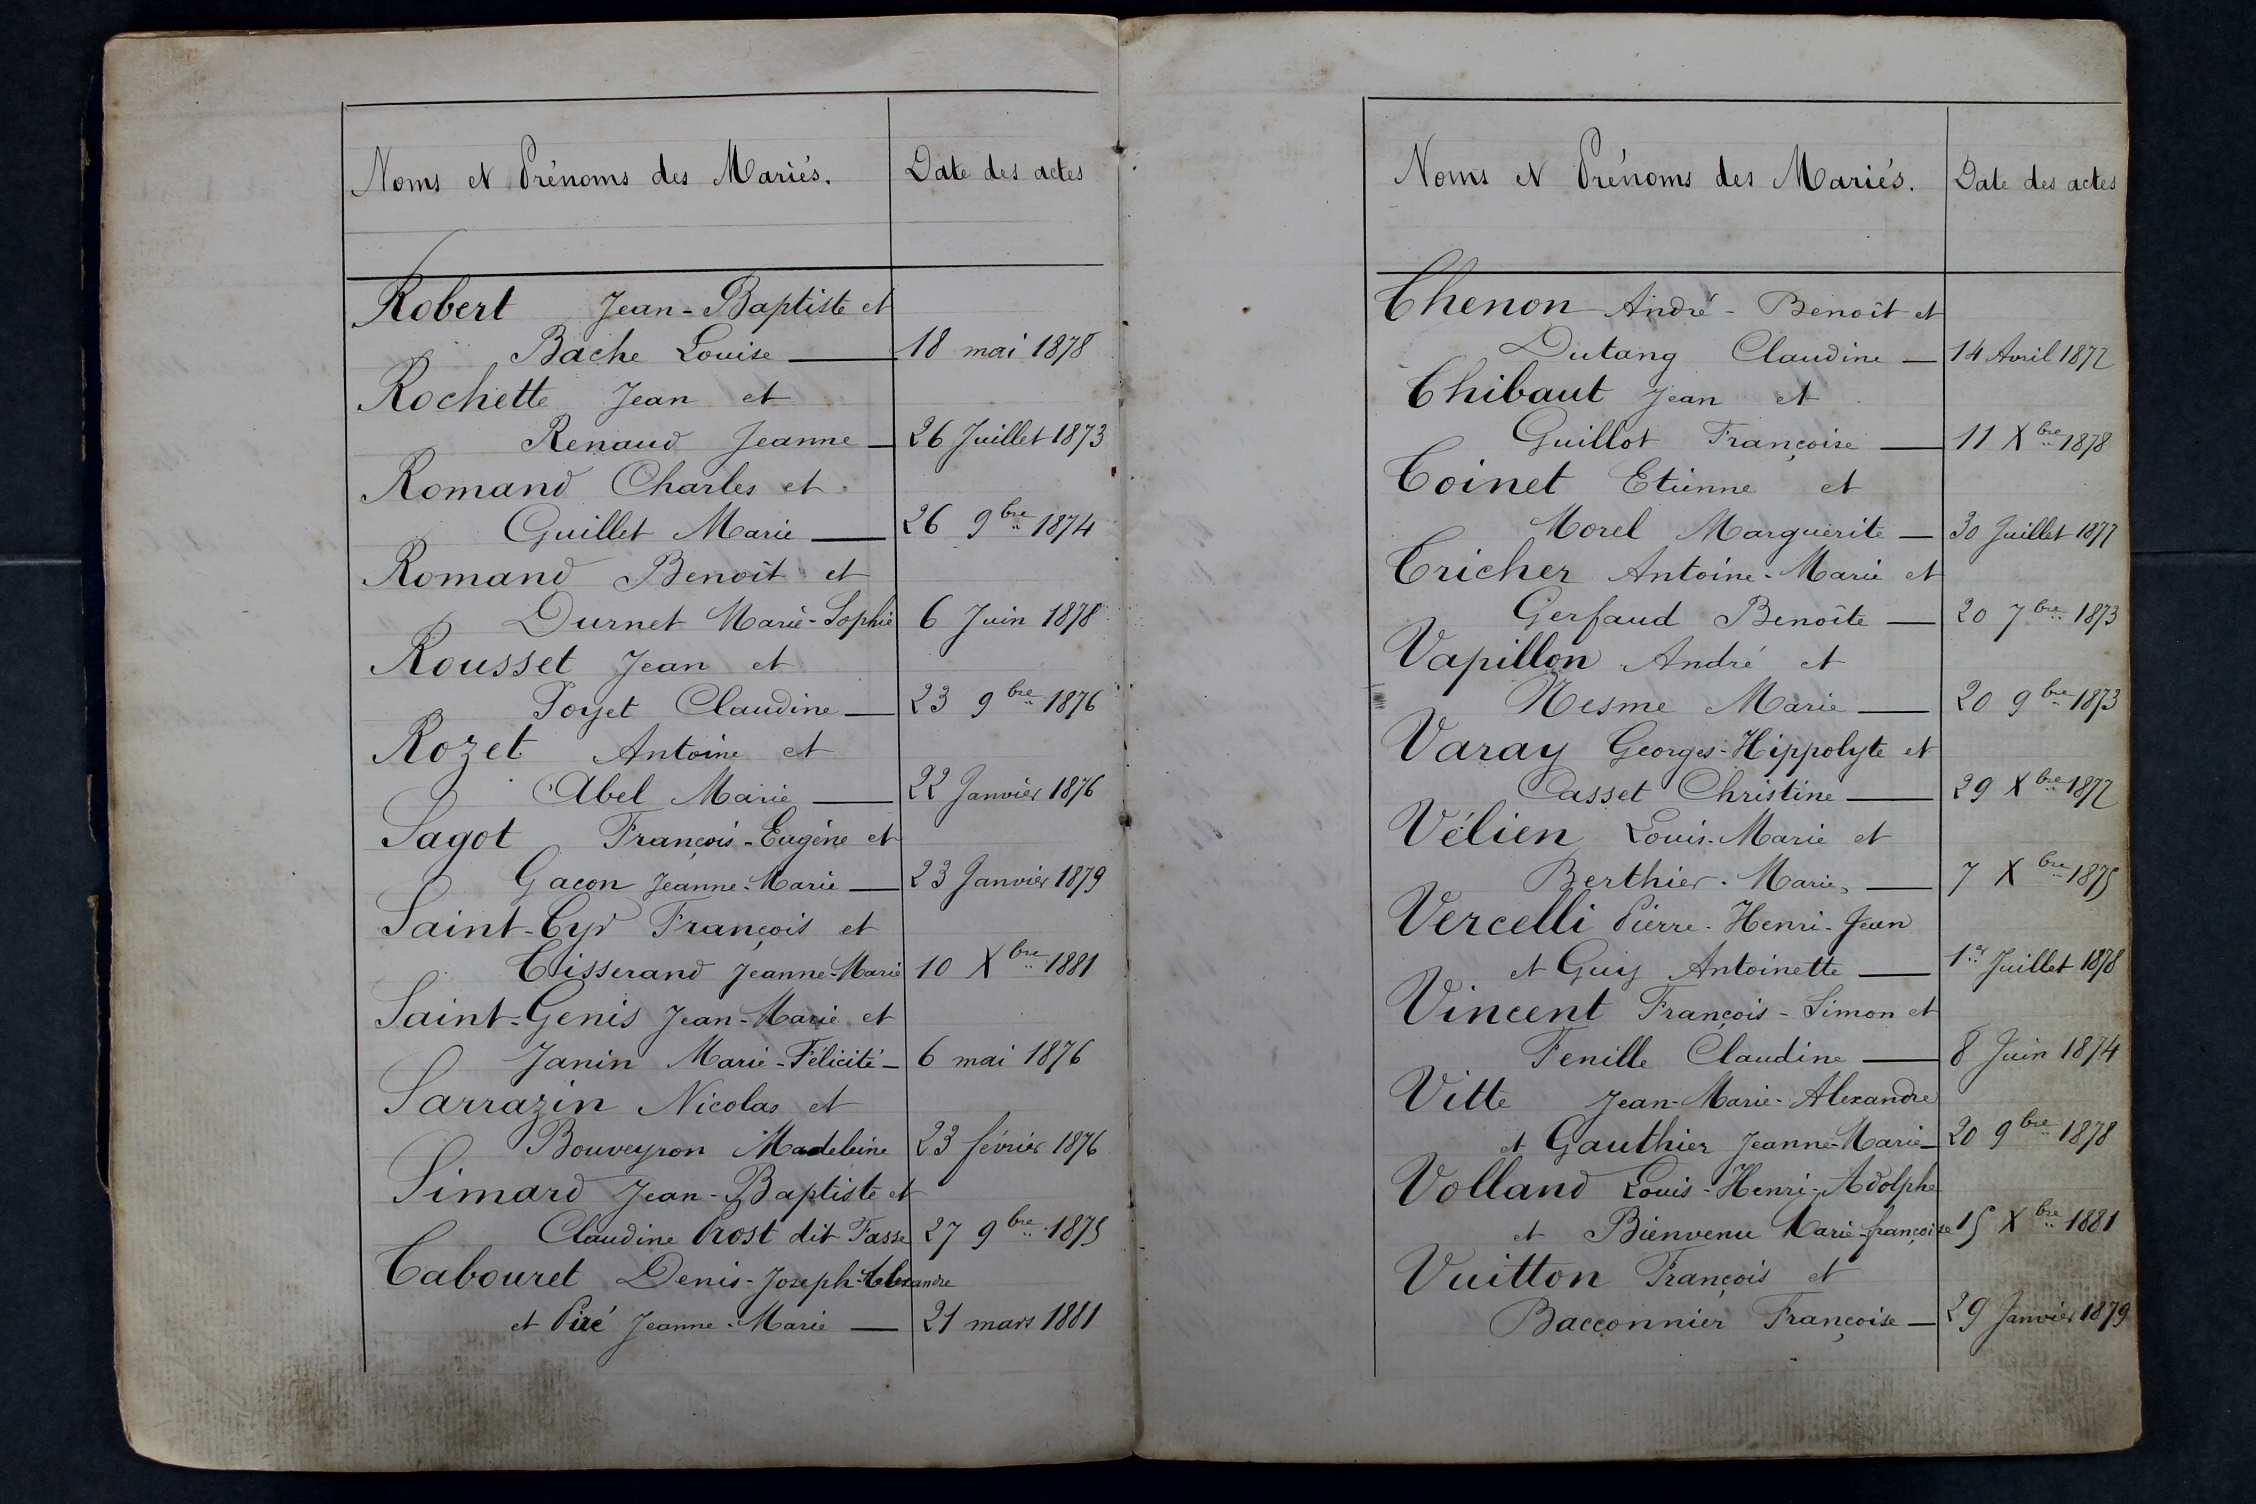 Noms et Prénoms des Mariés. Date des actes
Robert Jean-Baptiste et
Bache Louise — 18 mai 1878
Rochette Jean et
Renaud Jeanne — 26 Juillet 1873
Romand Charles et
Guillet Marie — 26 9bre 1874
Romand Benoît et
Durnet Marie-Sophie 6 Juin 1878
Rousset Jean et
Poyet Claudine — 23 9bre 1876
Rozet Antoine et
Abel Marie — 22 Janvier 1876
Sagot François-Eugène et
Gacon Jeanne-Marie — 23 Janvier 1879
Saint-Cyr François et
Tisserand Jeanne-Marie 10 Xbre 1881
Saint-Genis Jean-Marie et
Janin Marie-Félicité — 6 mai 1876
Sarrazin Nicolas et
Bouveyron Madeleine 23 février 1876
Simard Jean-Baptiste et
Claudine Prost dit Tasse 27 9bre 1875
Tabouret Denis-Joseph-Alexandre
et Piré Jeanne-Marie — 21 mars 1881
Noms et Prénoms des Mariés. Date des actes
Thenon André-Benoît et
Dutang Claudine — 14 Avril 1877
Thibaut Jean et
Guillot Françoise — 11 Xbre 1878
Toinet Etienne et
Morel Marguerite — 30 Juillet 1877
Tricher Antoine-Marie et
Gerfaud Benoîte — 20 7bre 1873
Vapillon André et
Nesme Marie — 20 9bre 1873
Varay Georges-Hippolyte et
Casset Christine — 29 Xbre 1877
Vélien Louis-Marie et
Berthier Marie — 7 Xbre 1875
Vercelli Pierre-Henri-Jean
et Guy Antoinette — 1er Juillet 1878
Vincent François-Simon et
Fenille Claudine — 8 Juin 1874
Vitte Jean-Marie-Alexandre
et Gauthier Jeanne-Marie — 20 9bre 1878
Volland Louis-Henri-Adolphe
et Bienvenu Marie-françoise 15 Xbre 1881
Vuitton François et
Bacconnier Françoise — 29 Janvier 1879